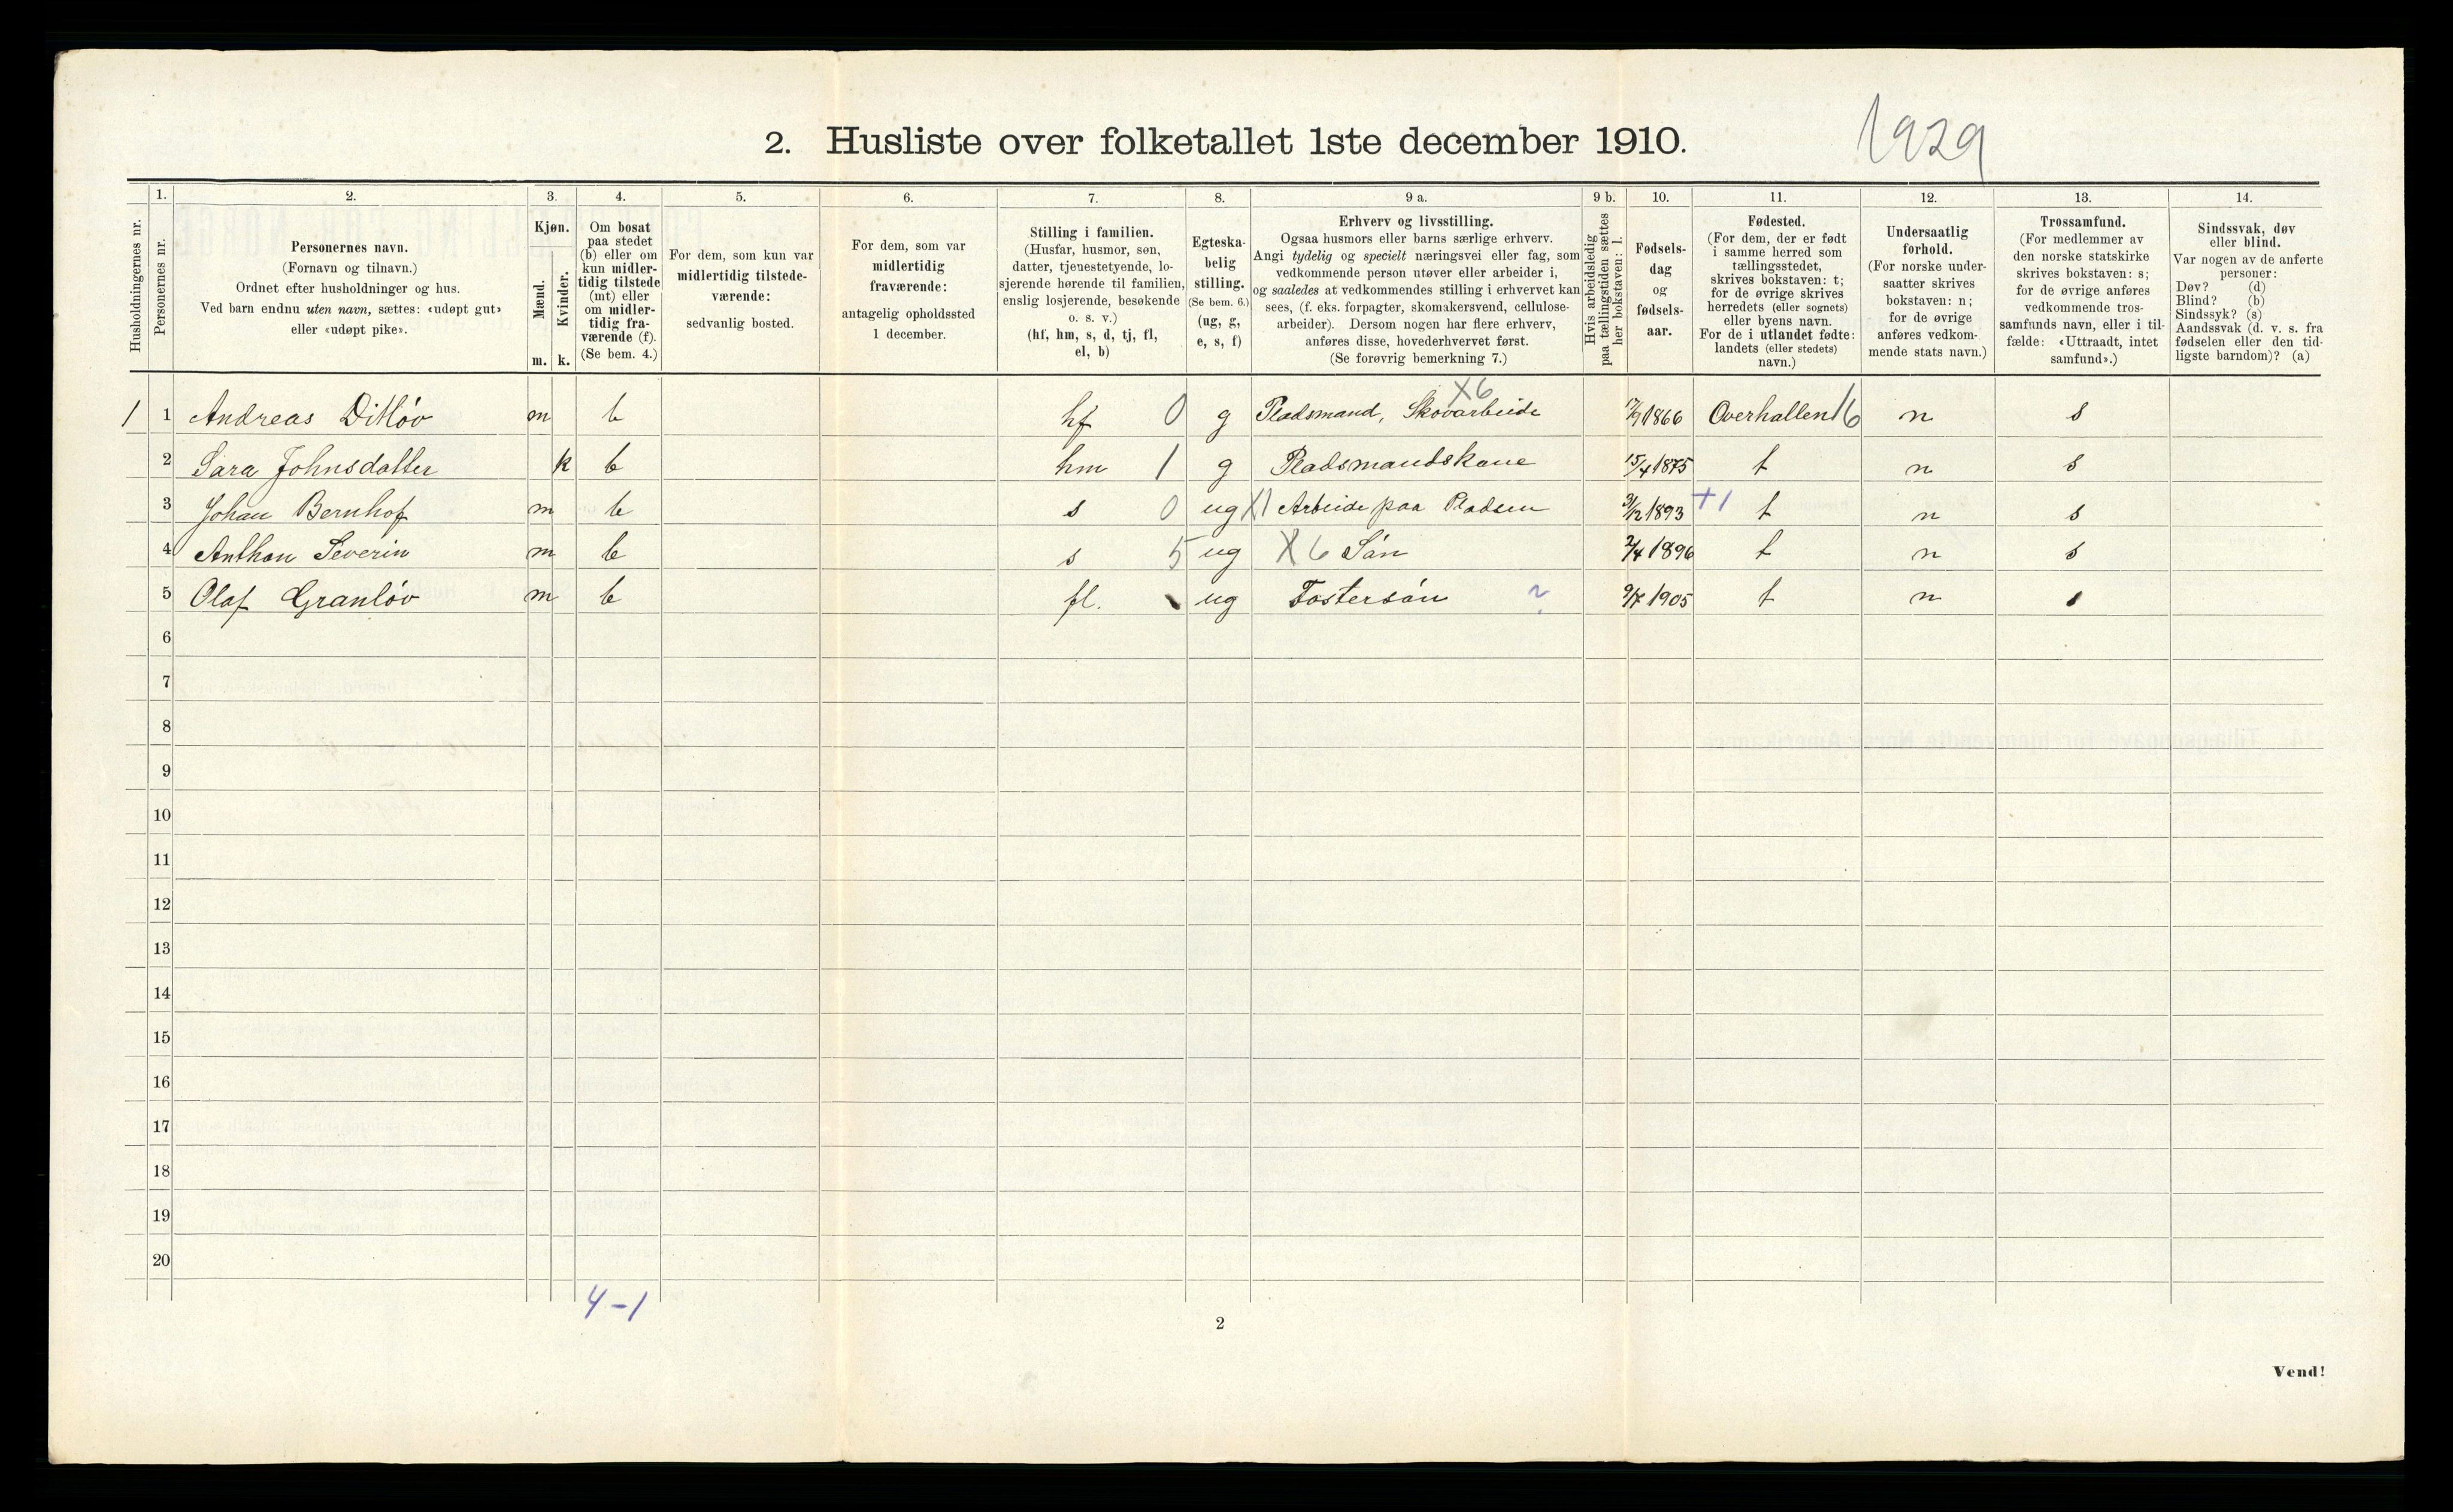 2. Husliste over folketallet 1ste december 1910.
1929
1. 2. 3. 4. 5. 6. 7. 8. 9 a. 9 b. 10. 11. 12. 13. 14.
Husholdningernes nr.
Personernes nr.
Personernes navn.
(Fornavn og tilnavn.)
Ordnet efter husholdninger og hus.
Ved barn endnu uten navn, sættes: «udøpt gut»
eller «udøpt pike».
Kjøn.
Mænd.
Kvinder.
m. k.
Om bosat
paa stedet
(b) eller om
kun midler-
tidig tilstede
(mt) eller
om midler-
tidig fra-
værende (f).
(Se bem. 4.)
For dem, som kun var
midlertidig tilstede-
værende:
sedvanlig bosted.
For dem, som var
midlertidig
fraværende:
antagelig opholdssted
1 december.
Stilling i familien.
(Husfar, husmor, søn,
datter, tjenestetyende, lo-
sjerende hørende til familien,
enslig losjerende, besøkende
o. s. v.)
(hf, hm, s, d, tj, fl,
el, b)
Egteska-
belig
stilling.
(Se bem. 6.)
(ug, g,
e, s, f)
Erhverv og livsstilling.
Ogsaa husmors eller barns særlige erhverv.
Angi tydelig og specielt næringsvei eller fag, som
vedkommende person utøver eller arbeider i,
og saaledes at vedkommendes stilling i erhvervet kan
sees, (f. eks. forpagter, skomakersvend, cellulose-
arbeider). Dersom nogen har flere erhverv,
anføres disse, hovederhvervet først.
(Se forøvrig bemerkning 7.)
Hvis arbeidsledig
paa tællingstiden sættes
her bokstaven: l.
Fødsels-
dag
og
fødsels-
aar.
Fødested.
(For dem, der er født
i samme herred som
tællingsstedet,
skrives bokstaven: t;
for de øvrige skrives
herredets (eller sognets)
eller byens navn.
For de i utlandet fødte:
landets (eller stedets)
navn.)
Undersaatlig
forhold.
(For norske under-
saatter skrives
bokstaven: n;
for de øvrige
anføres vedkom-
mende stats navn.)
Trossamfund.
(For medlemmer av
den norske statskirke
skrives bokstaven: s;
for de øvrige anføres
vedkommende tros-
samfunds navn, eller i til-
fælde: «Uttraadt, intet
samfund».)
Sindssvak, døv
eller blind.
Var nogen av de anførte
personer:
Døv? (d)
Blind? (b)
Sindssyk? (s)
Aandssvak (d. v. s. fra
fødselen eller den tid-
ligste barndom)? (a)
X6
1 1 Andreas Ditløv m b hf 0 g Pladsmand, Skovarbeide 17/9 1866 Overhallen 16 n s
2 Sara Johnsdatter k b hm 1 g Pladsmandskone 15/4 1875 t n s
3 Johan Bernhof m b s 0 ug X1 Arbeide paa Pladsen 3/12 1893 +1 t n s
4 Anthon Severin m b s 5 ug X6 Søn 2/4 1896 t n s
5 Olaf Granløv m b fl. ug Fostersøn ? 9/7 1905 t n s
6
7
8
9
10
11
12
13
14
15
16
17
18
19
20
4-1
2
Vend!